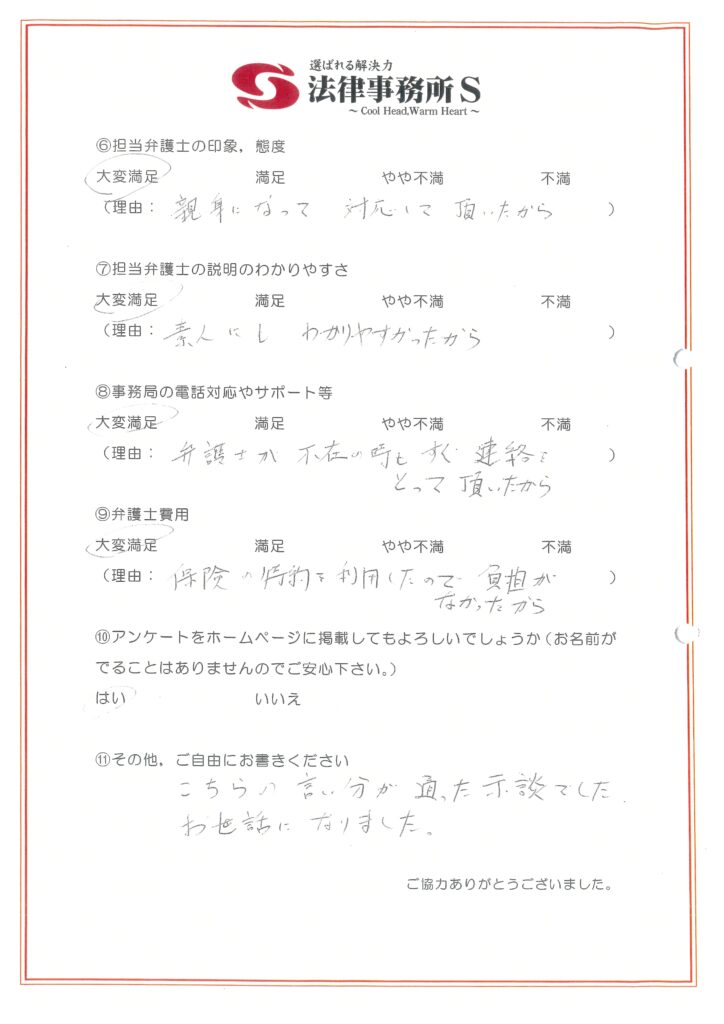 選ばれる解決力
法律事務所S
～ Cool Head,Warm Heart ～
⑥担当弁護士の印象，態度
大変満足 満足 やや不満 不満
（理由： 親身になって 対応して 頂いたから ）
⑦担当弁護士の説明のわかりやすさ
大変満足 満足 やや不満 不満
（理由： 素人にも わかりやすかったから ）
⑧事務局の電話対応やサポート等
大変満足 満足 やや不満 不満
（理由： 弁護士が 不在の時も すぐ 連絡を ）
とって 頂いたから
⑨弁護士費用
大変満足 満足 やや不満 不満
（理由： 保険の特約を利用したので 負担が ）
なかったから
⑩アンケートをホームページに掲載してもよろしいでしょうか（お名前が
でることはありませんのでご安心下さい。）
はい いいえ
⑪その他，ご自由にお書きください
こちらの 言い分が 通った示談でした
お世話に なりました。
ご協力ありがとうございました。